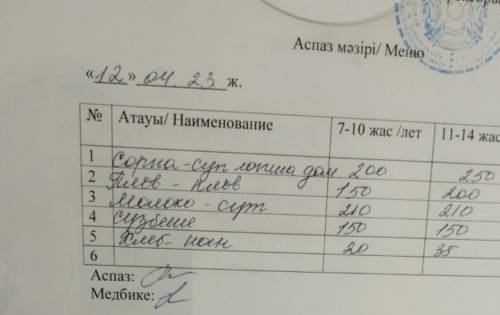 Аспаз мәзірі/ Меню
«12» 04. 23 ж.
№ Атауы/ Наименование 7-10 жас /лет 11-14 жас
1 Сорпа - суп лапша дом 200 250
2 Плов - плов 150 200
3 Молоко - сүт 210 210
4 Сузбеше 150 150
5 Хлеб - нан 20 35
6
Аспаз:
Медбике: